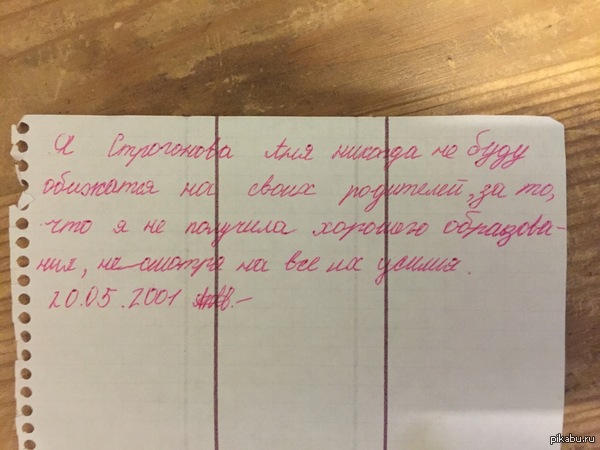 Я Строгонова Аня никогда не буду
обижатся на своих родителей, за то,
что я не получила хорошего образова-
ния, не смотря на все их усилия.
20.05.2001
pikabu.ru